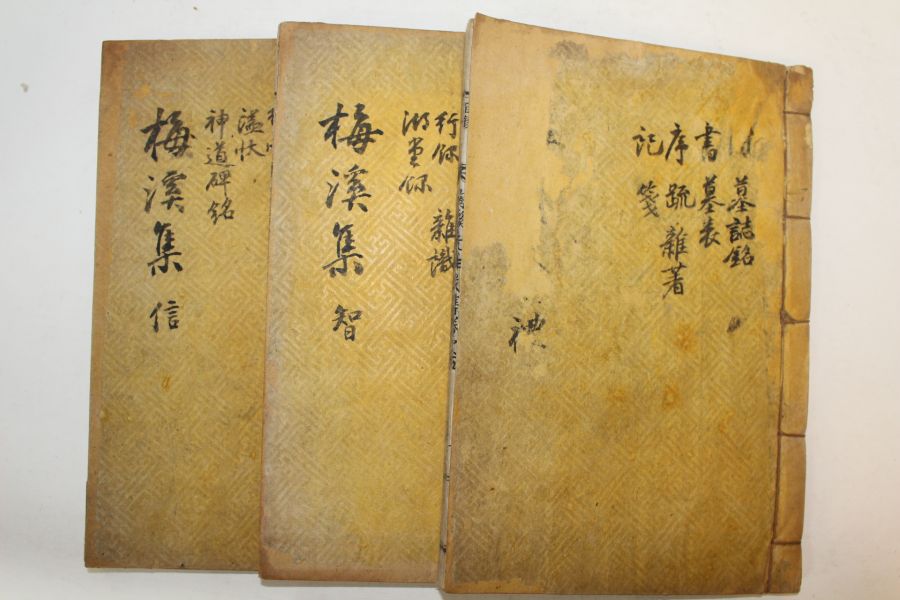 墓誌銘
書 墓表
序 疏 雜著
記 箋
禮
行錄 雜識
湖堂錄
梅溪集 智
謚狀
神道碑銘
梅溪集 信